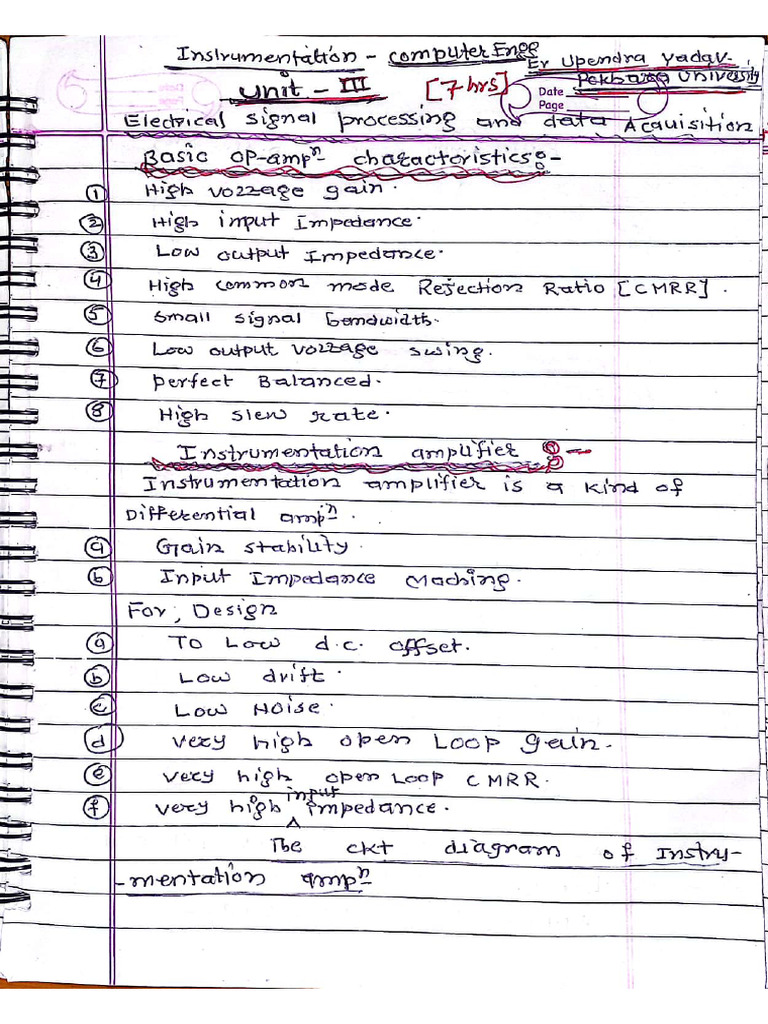 Instrumentation - computer Engg
Er Upendra Yadav.
Unit - III [7 hrs]
Pokhara University
Date
Page
Electrical signal processing and data Acquisition
Basic op-ampⁿ charactoristics:-
① High vozzage gain.
② High input Impedance.
③ Low output Impedance.
④ High common mode Rejection Ratio [CMRR].
⑤ Small signal bandwidth.
⑥ Low output vozzage swing.
⑦ Perfect Balanced.
⑧ High slew rate.
Instrumentation amplifier :-
Instrumentation amplifier is a kind of
Differential ampⁿ.
ⓐ Gain stability.
ⓑ Input Impedance Maching.
For, Design
ⓐ To Low d.c. offset.
ⓑ Low drift.
ⓒ Low Noise.
ⓓ very high open Loop gain.
ⓔ very high open Loop CMRR.
ⓕ very high input impedance.
The ckt diagram of Instru-
-mentation ampⁿ